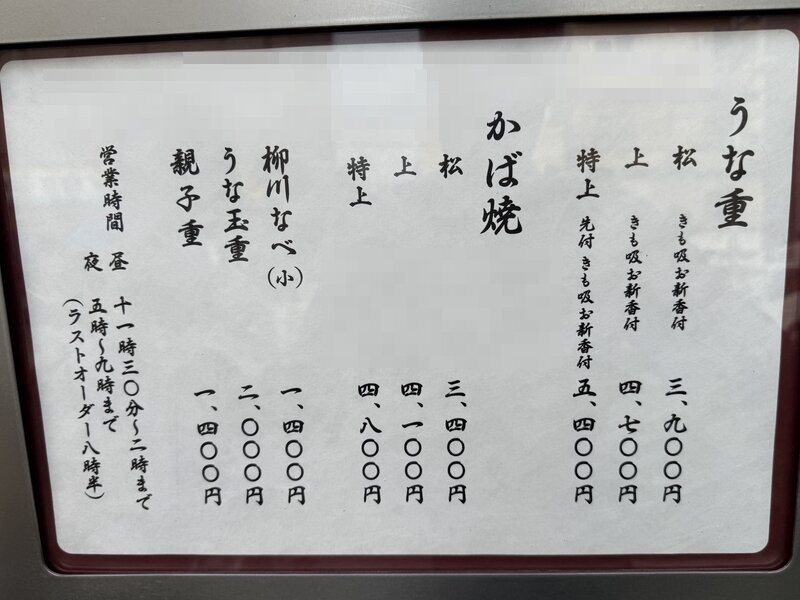 うな重
松 きも吸お新香付 三、九〇〇円
上 きも吸お新香付 四、七〇〇円
特上 先付 きも吸お新香付 五、四〇〇円
かば焼
松 三、四〇〇円
上 四、一〇〇円
特上 四、八〇〇円
柳川なべ(小) 一、四〇〇円
うな玉重 二、〇〇〇円
親子重 一、四〇〇円
営業時間 昼 十一時三〇分〜二時まで
夜 五時〜九時まで
(ラストオーダー八時半)